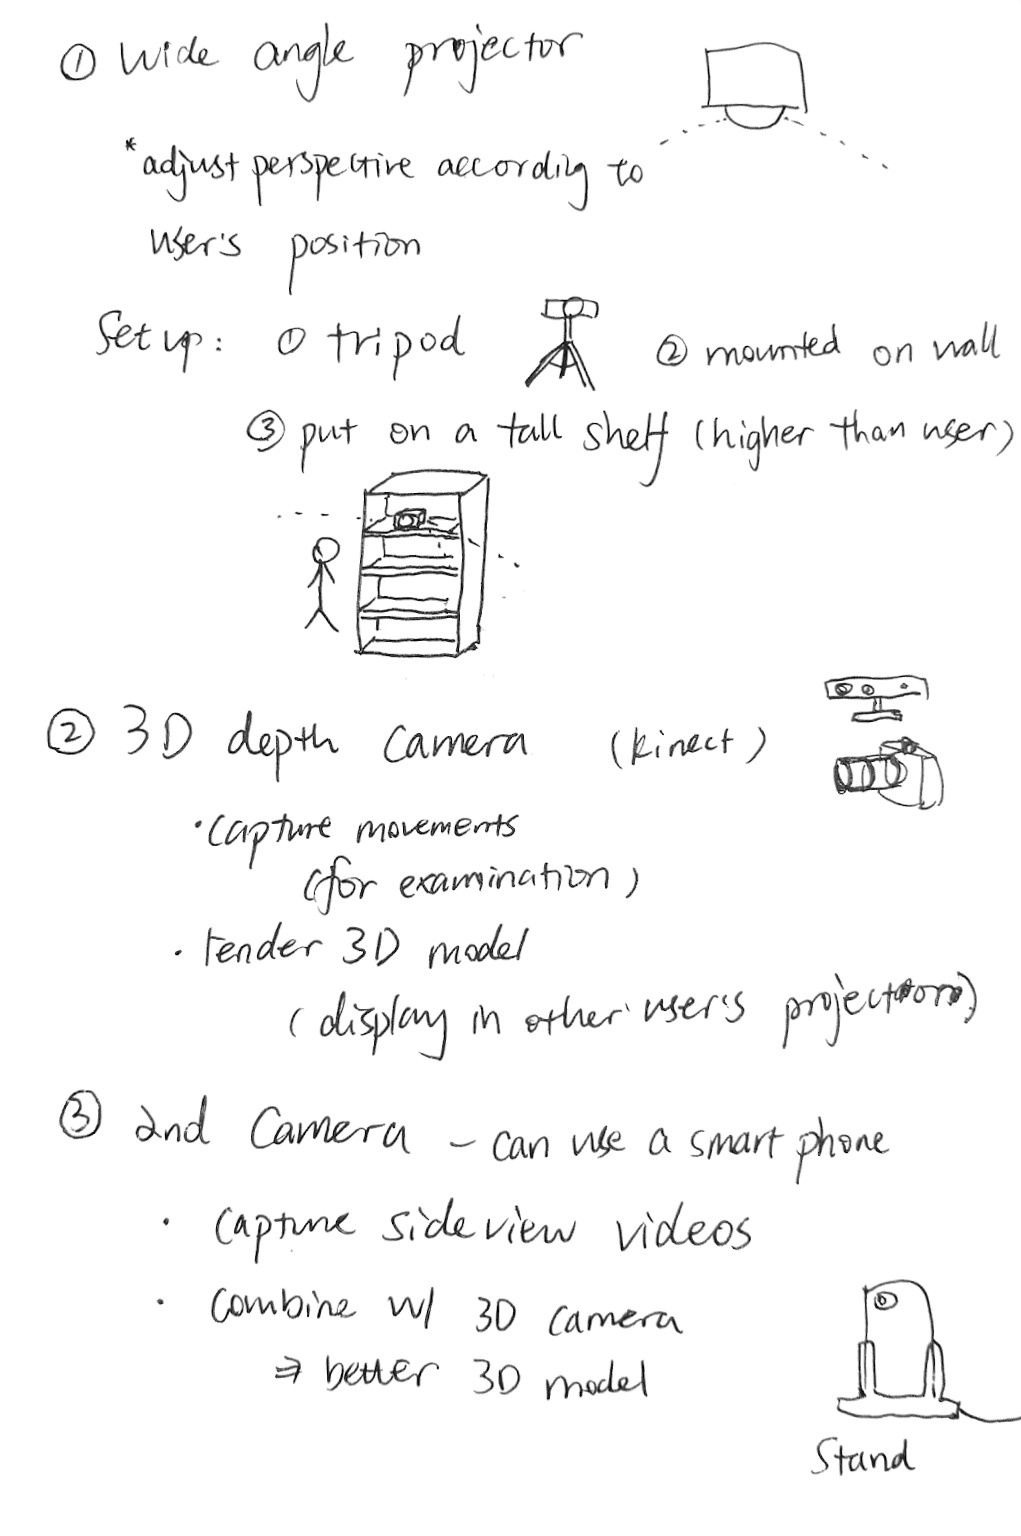 ① Wide angle projector
*adjust perspective according to
user's position
Set up: ① tripod ② mounted on wall
③ put on a tall shelf (higher than user)
② 3D depth camera (kinect)
· capture movements
(for examination)
· render 3D model
(display in other user's projector)
③ 2nd Camera – can use a smart phone
· capture side view videos
· combine w/ 3D camera
⇒ better 3D model
Stand